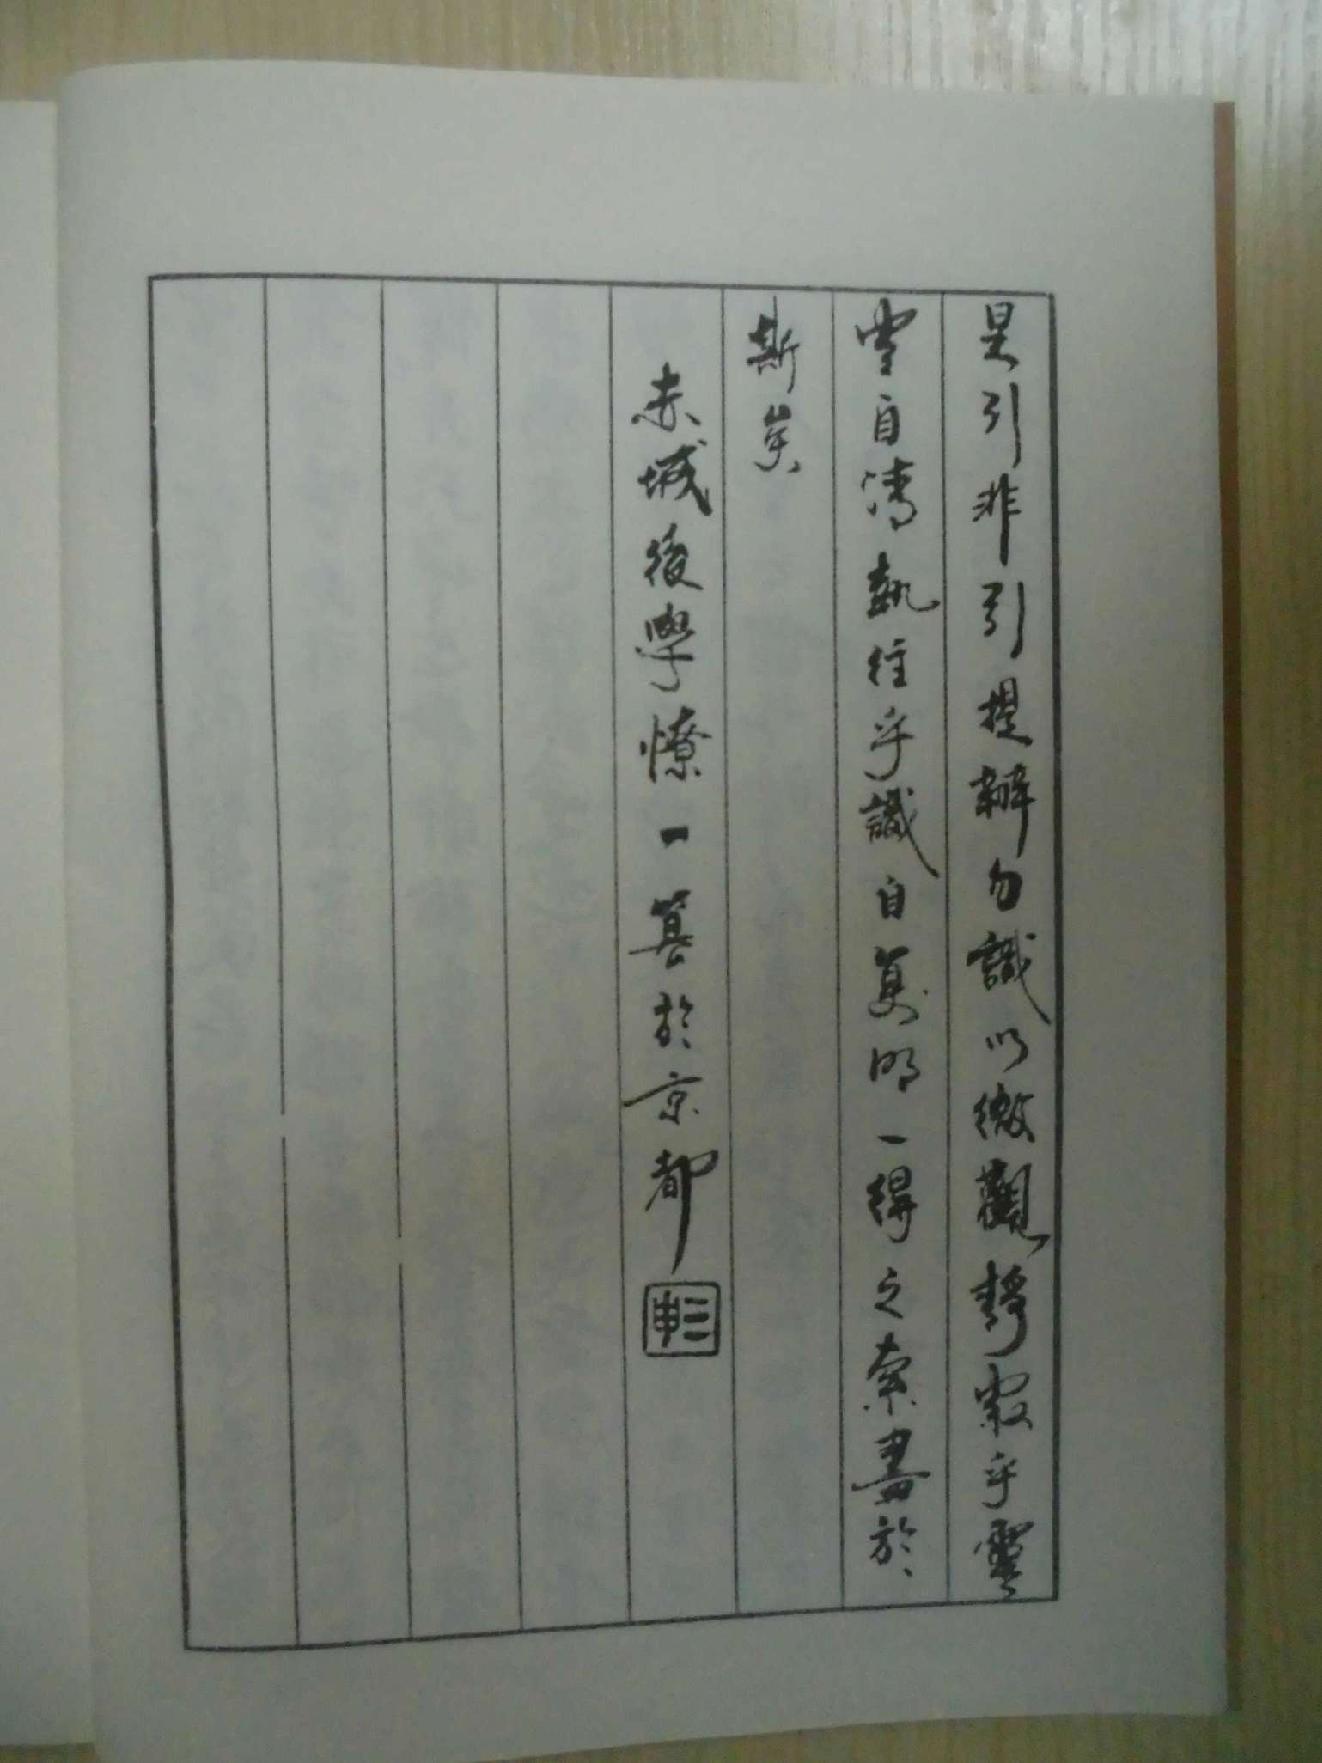 是引非引提辦勿識以微觀靜寂乎靈
靈自清執往乎識自真明一得之案書於
斯矣
赤城後學憭一算於京都